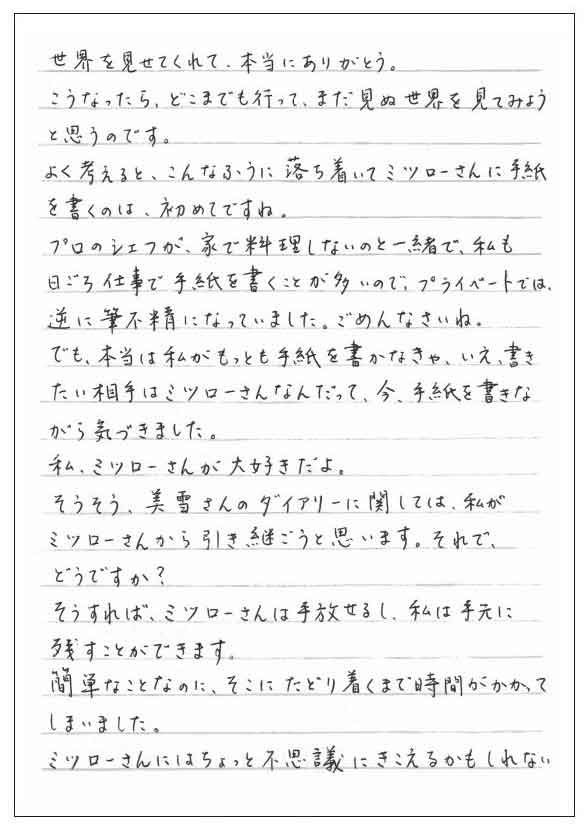 世界を見せてくれて、本当にありがとう。
こうなったら、どこまでも行って、まだ見ぬ世界を見てみよう
と思うのです。
よく考えると、こんなふうに落ち着いてミツローさんに手紙
を書くのは、初めてですね。
プロのシェフが、家で料理しないのと一緒で、私も
日ごろ仕事で手紙を書くことが多いので、プライベートでは、
逆に筆不精になっていました。ごめんなさいね。
でも、本当は私がもっとも手紙を書かなきゃ、いえ、書き
たい相手はミツローさんなんだって、今、手紙を書きな
がら気づきました。
私、ミツローさんが大好きだよ。
そうそう、美雪さんのダイアリーに関しては、私が
ミツローさんから引き継ごうと思います。それで、
どうですか？
そうすれば、ミツローさんは手放せるし、私は手元に
残すことができます。
簡単なことなのに、そこにたどり着くまで時間がかかって
しまいました。
ミツローさんにはちょっと不思議にきこえるかもしれない